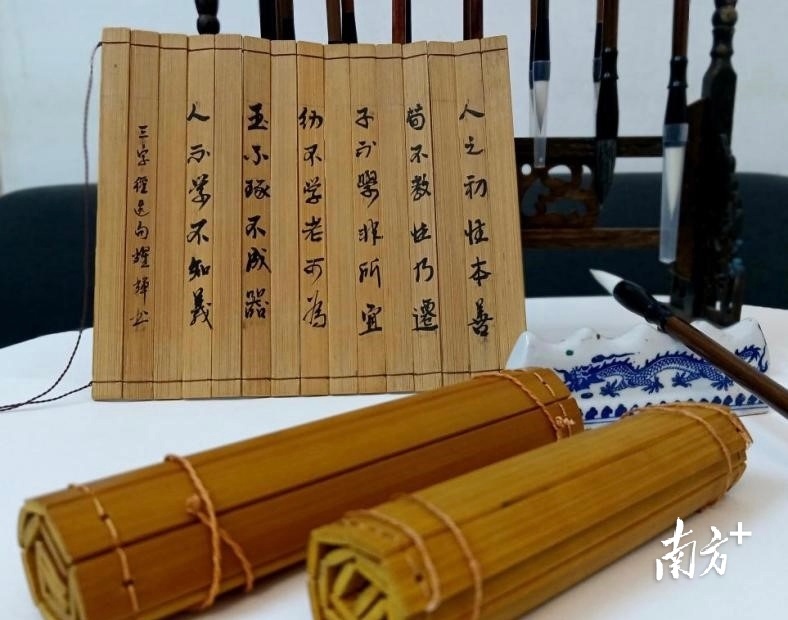 人之初性本善
苟不教性乃遷
子不學非所宜
幼不学老何為
玉不琢不成器
人不學不知義
三字經选句耀輝书
南方+